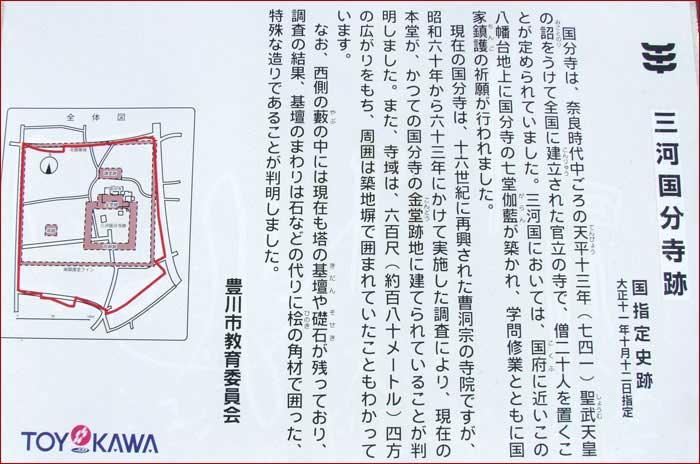 三河国分寺跡
国指定史跡
大正十一年十月十二日指定
国分寺は、奈良時代中ごろの天平十三年（七四一）聖武天皇
の詔をうけて全国に建立された官立の寺で、僧二十人を置くこ
とが定められていました。三河国においては、国府に近いこの
八幡台地上に国分寺の七堂伽藍が築かれ、学問修業とともに国
家鎮護の祈願が行われました。
現在の国分寺は、十六世紀に再興された曹洞宗の寺院ですが、
昭和六十年から六十三年にかけて実施した調査により、現在の
本堂が、かつての国分寺の金堂跡地に建てられていることが判
明しました。また、寺域は、六百尺（約百八十メートル）四方
の広がりをもち、周囲は築地塀で囲まれていたこともわかって
います。
なお、西側の藪の中には現在も塔の基壇や礎石が残っており、
調査の結果、基壇のまわりは石などの代りに桧の角材で囲った、
特殊な造りであることが判明しました。
豊川市教育委員会
全体図
TOYOKAWA